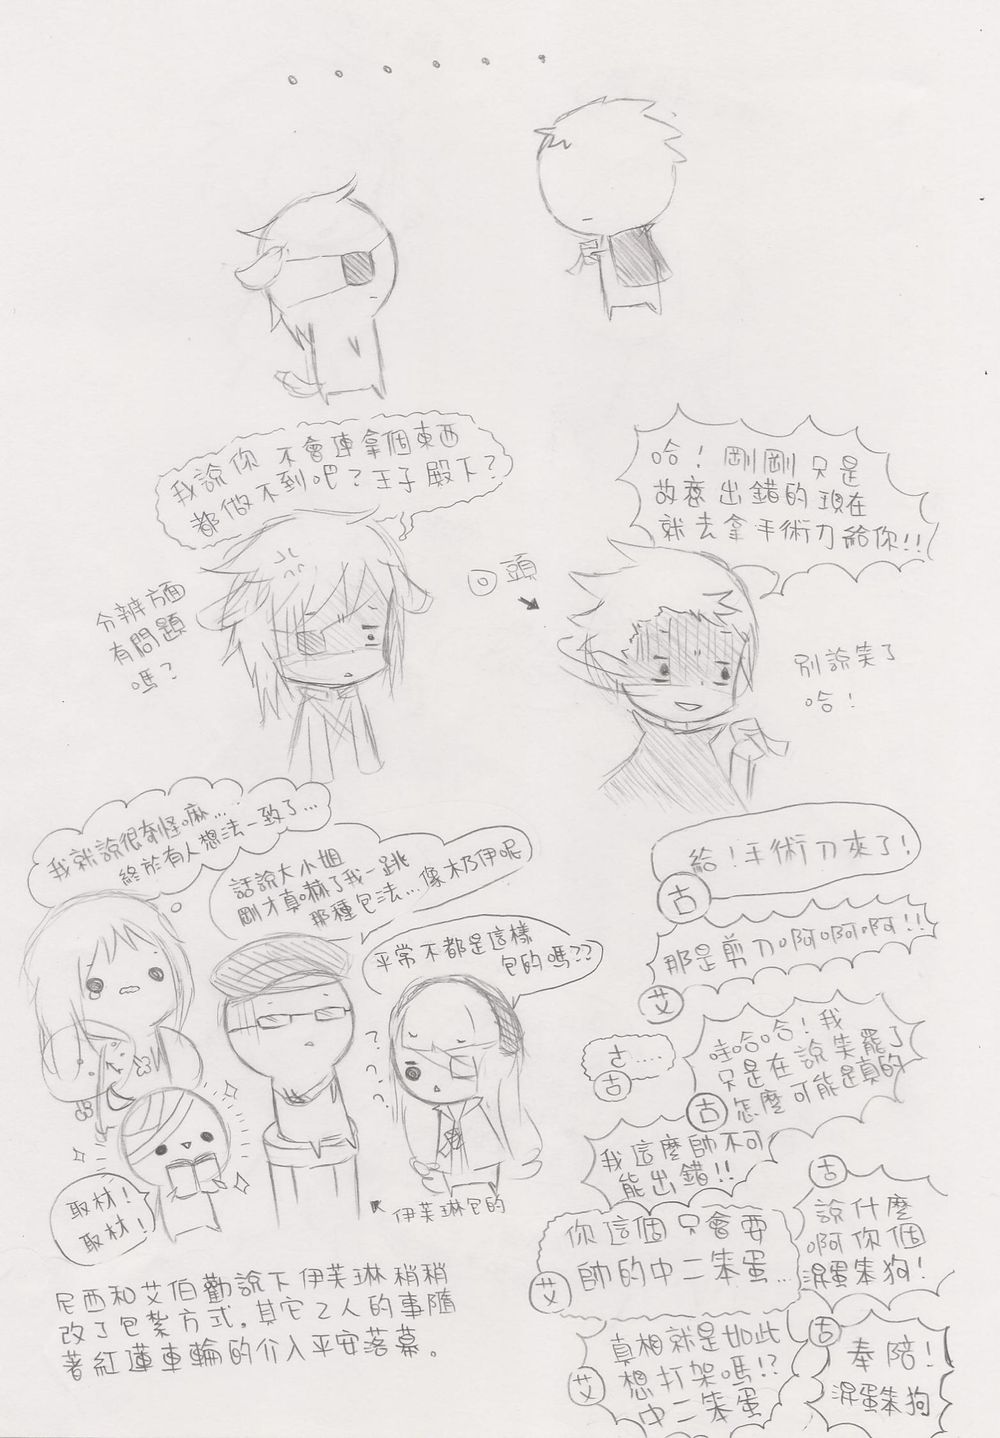 。。。。。。
我說你不會連拿個東西
都做不到吧？王子殿下？
分辨方面
有問題
嗎？
哈！剛剛只是
故意出錯的現在
就去拿手術刀給你!!
回頭
別說笑了
哈！
我就說很奇怪嘛…
終於有人想法一致了…
話說大小姐
剛才真嚇了我一跳
那種包法…像木乃伊呢
平常不都是這樣
包的嗎??
????
取材！
取材！
伊芙琳包的
尼西和艾伯勸說下伊芙琳稍稍
改了包紮方式。其它2人的事隨
著紅蓮車輪的介入平安落幕。
給！手術刀來了！
古
那是剪刀啊啊啊!!
艾
古....
古
哇哈哈！我
只是在說笑罷了
怎麼可能是真的
古
我這麼帥不可
能出錯!!
你這個只會耍
帥的中二笨蛋…
艾
古
說什麼
啊你個
混蛋笨狗！
真相就是如此
想打架嗎!?
中二笨蛋
艾
古
奉陪！
混蛋笨狗